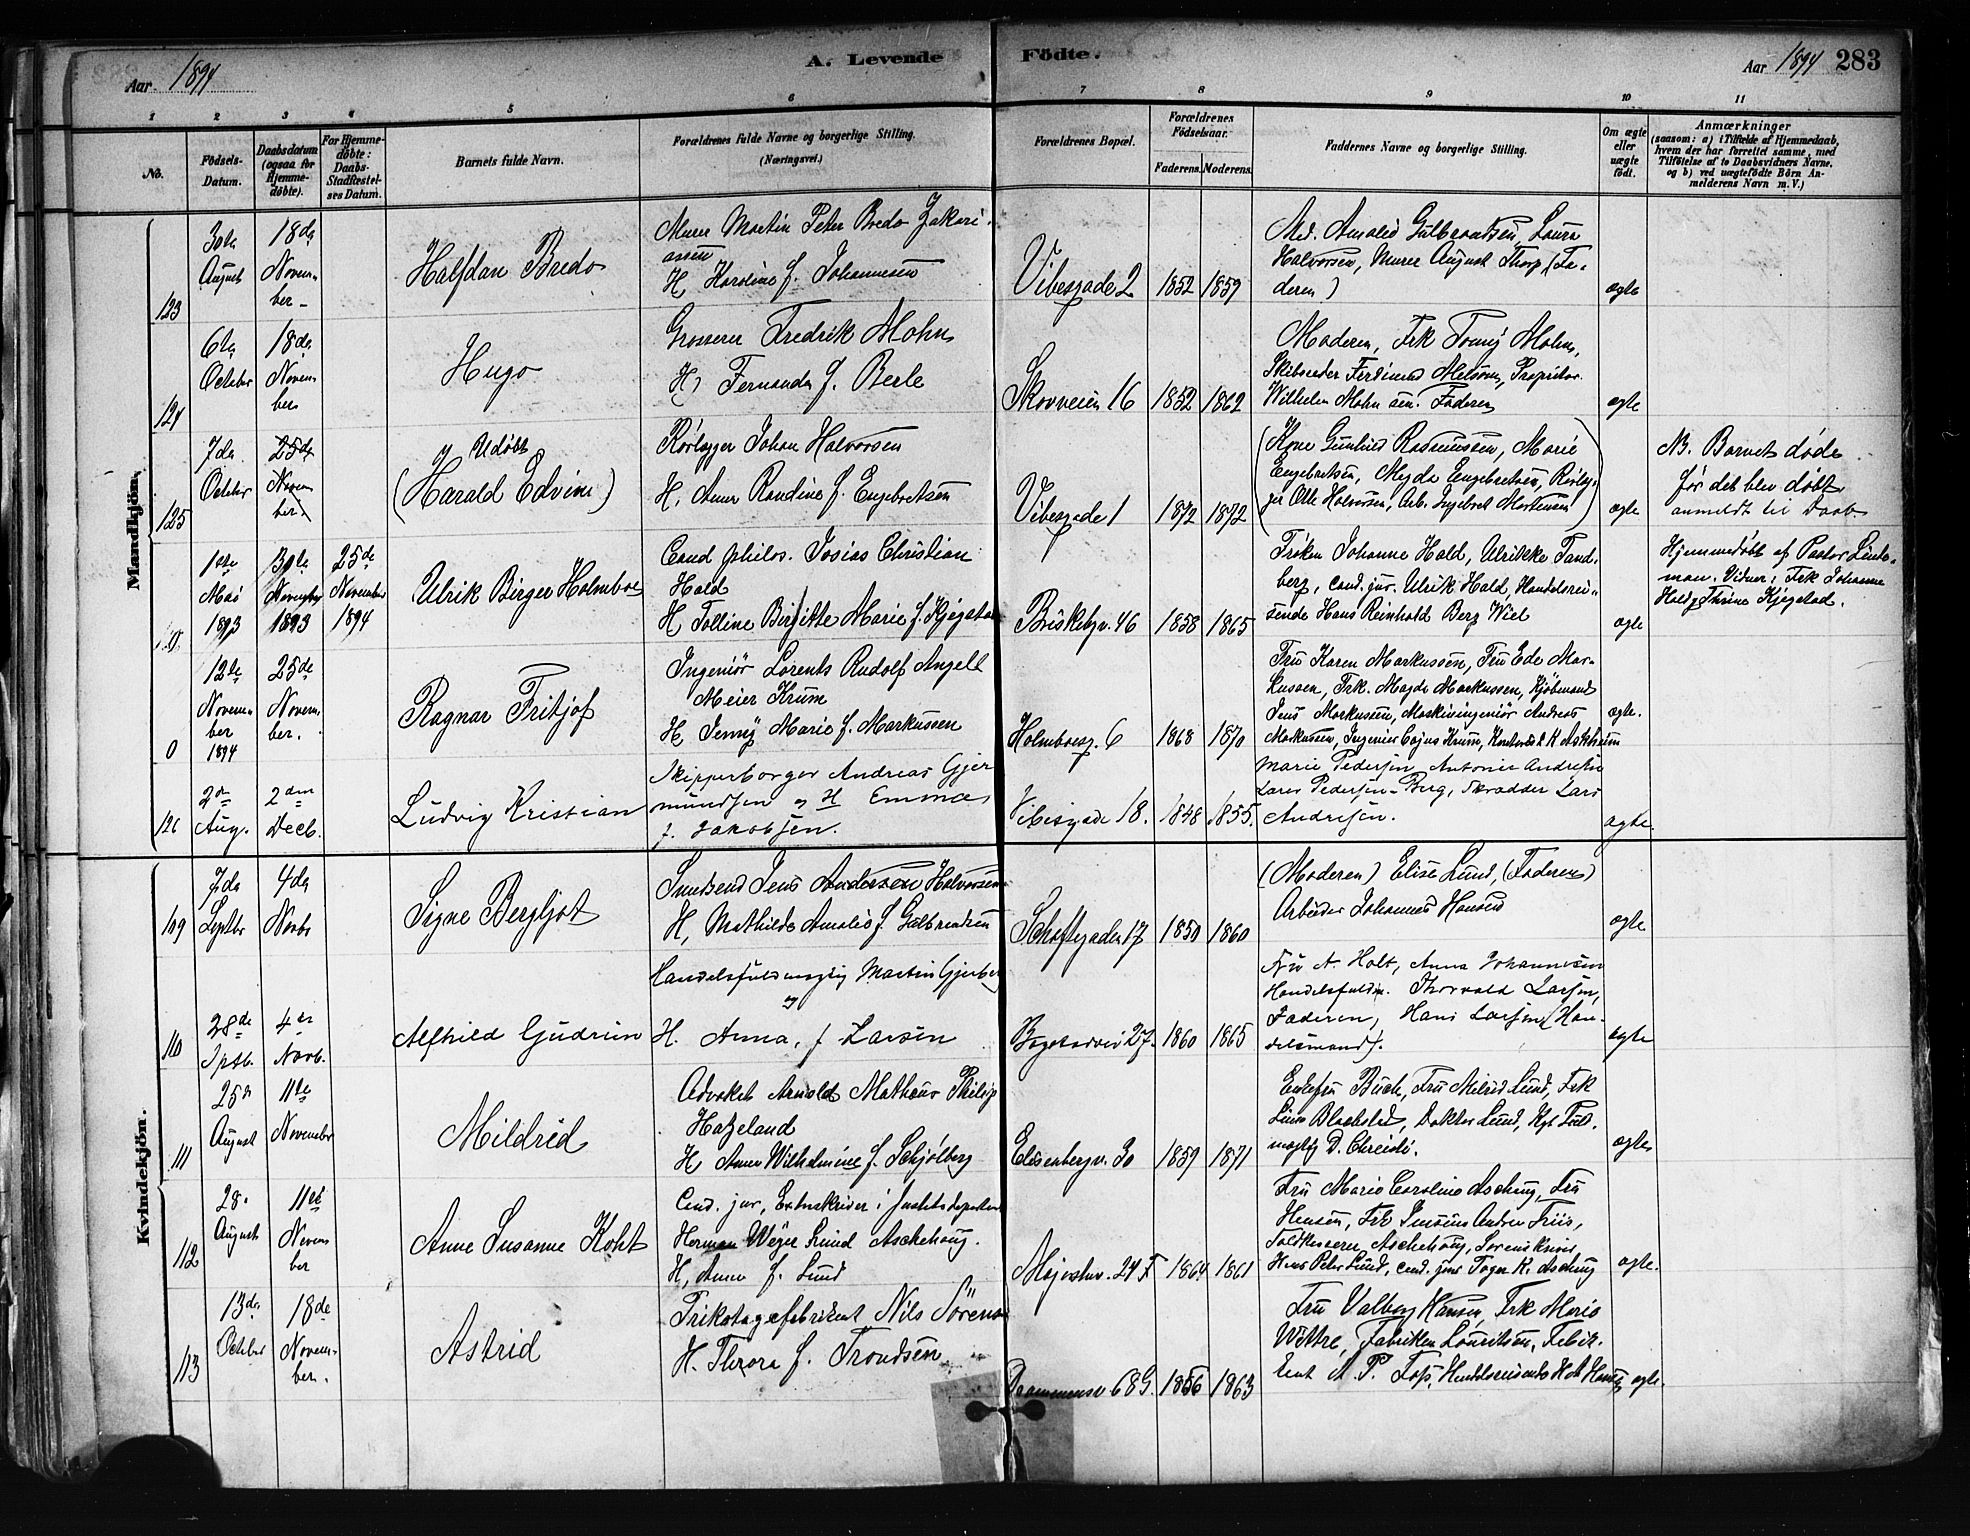 Aar 1894
A. Levende
Födte.
Aar 1894 283
1 2 3 4 5 6 7 8 9 10 11
No.
Födsels-Datum.
Daabsdatum (ogsaa for Hjemmedøbte).
For Hjemmedøbte: Daabs-Stadfæstelses Datum.
Barnets fulde Navn.
Forældrenes fulde Navne og borgerlige Stilling.
(Næringsvei.)
Forældrenes Bopæl.
Forældrenes Födselsaar.
Faderens. Moderens.
Faddernes Navne og borgerlige Stilling.
Om ægte eller uægte født.
Anmærkninger
(saasom: a) i Tilfælde af Hjemmedaab, hvem der har forrettet samme, med Tilföielse af to Daabsvidners Navne. og b) ved uægtefødte Börn Anmelderens Navn m. V.)
Mandkjön.
123
30te August
18de November
Halfdan Bredo
Murer Martin Peter Bredo Zakariassen
H. Karoline f. Johannesen
Vibesgade 2
1852 1859
Md. Amalie Gulbrandsen, Laura
Halvorsen, Murer August Thorp, (Faderen)
ægte
124
6te October
18de November
Hugo
Grosserer Fredrik Mohn
H) Fernanda f. Berle
Skovveien 16
1852 1862
Moderen, Frk Fomy Mohn,
Skibsreder Ferdinand Melsom, Proprietær
Wilhelm Mohn sen. Faderen
ægte
125
7de October
25de November
Udøbt
(Harald Edvin)
Rørlægger Johan Halvorsen
H. Anna Randine f. Engebretsen
Vibesgade 1
1872 1872
(Kone Gunhild Rasmussen, Marie
Engebretsen, Magda Engebretsen, Rørlægger Otto Halvorsen, Arb. Ingebret Mortensen)
ægte
NB. Barnet døde
før det blev døbt
anmeldt til Daab.
1ste Mai 1893
30te November 1893
25de November 1894
Ulrik Birger Holmboe
Cand philos. Josias Christian
Hald
H Tolline Birgitte Marie f. Kjegstad
Briskebyv. 46
1858 1865
Frøken Johanne Hald, Ulrikke Tandberg, cand. jur. Ulrik Hald, Handelsreisende Hans Reinhold Berg Wiel
ægte
Hjemmedøbt af Pastor Lindeman. Vidner: Frk Johanne
Hald, Thrine Kjegstad.
0
12te November 1894
25de November.
Ragnar Fritjof
Ingeniør Lorents Rudolf Angell
Meier Krum
H Jenny Marie f. Markussen
Holmboesg. 6
1868 1870
Fru Karen Markussen, Fru Ede Markussen, Frk. Magda Markussen, Kjøbmand
Jens Markussen, Maskiningeniør Andreas
Markussen, Ingeniør Cajus Krum, K Askheim
ægte.
126
2den Aug.
2den Decb.
Ludvig Kristian
Skipperborger Andreas Gjermundsen og H Emma
f. Jakobsen.
Vibesgade 18.
1848 1855.
Marie Pedersen, Antonie Andresen
Lars Pedersen-Berg, Skrædder Lars
Andresen.
ægte.
Kvindekjön.
109
7de Septbr
4de Novbr
Signe Bergljot
Smedsvend Jens Andersen Halvorsen
H, Mathilde Amalie f. Gulbrandsen
Schaftegaden 17
1850 1860
(Moderen) Elise Lund, (Faderen)
Arbeider Johannes Hansen
ægte
110
28de Sptb.
4de Novb.
Alfhild Gudrun
Handelsfuldmægtig Martin Gjerber
og
H. Anna, f Larsen
Bogstadvei 27.
1860 1865
Fru A. Holt, Anna Johannesen
Handelsfuldm. Thorvald Larsen,
Faderen, Hans Larsen (Handelsmand).
ægte
111
25de August
11te November
Mildrid
Advokat Arnold Mathæus Philip
Hazeland
H Anna Wilhelmine f. Schjølberg
Elisenbergv. 30
1859 1871
Enkefru Buck, Fru Milrid Lund, Frk
Doktor Lund, Kgl Fuldmægtig D. Christie.
ægte
112
28. August
11te November
Anne Susanne Koht
Cand. jur, Extraskriver i Justitsdepartem
Herman Weyer Lund Aschehoug.
H, Anna f. Lund
Majorstuv. 24 F
1864 1861
Fru Marie Caroline Aschehoug, Fru
Hensen, Frk Andrea Friis,
Toldkasserer Aschehoug, Sorenskriver
Hans Peter Lund, cand. jur Toger K. Aschehoug
ægte.
113
13de October
18de November.
Astrid
Trikotagefabrikant Nils Sörensen
H. Thora f. Trondsen
Drammensv 68 G.
1856 1863
Fru Valborg Hansen, Frk Marie
Wittre, Fabrikan Lauritsen, Fabrikant A. P. Foss, Handelsreisende H A Hansen
ægte.